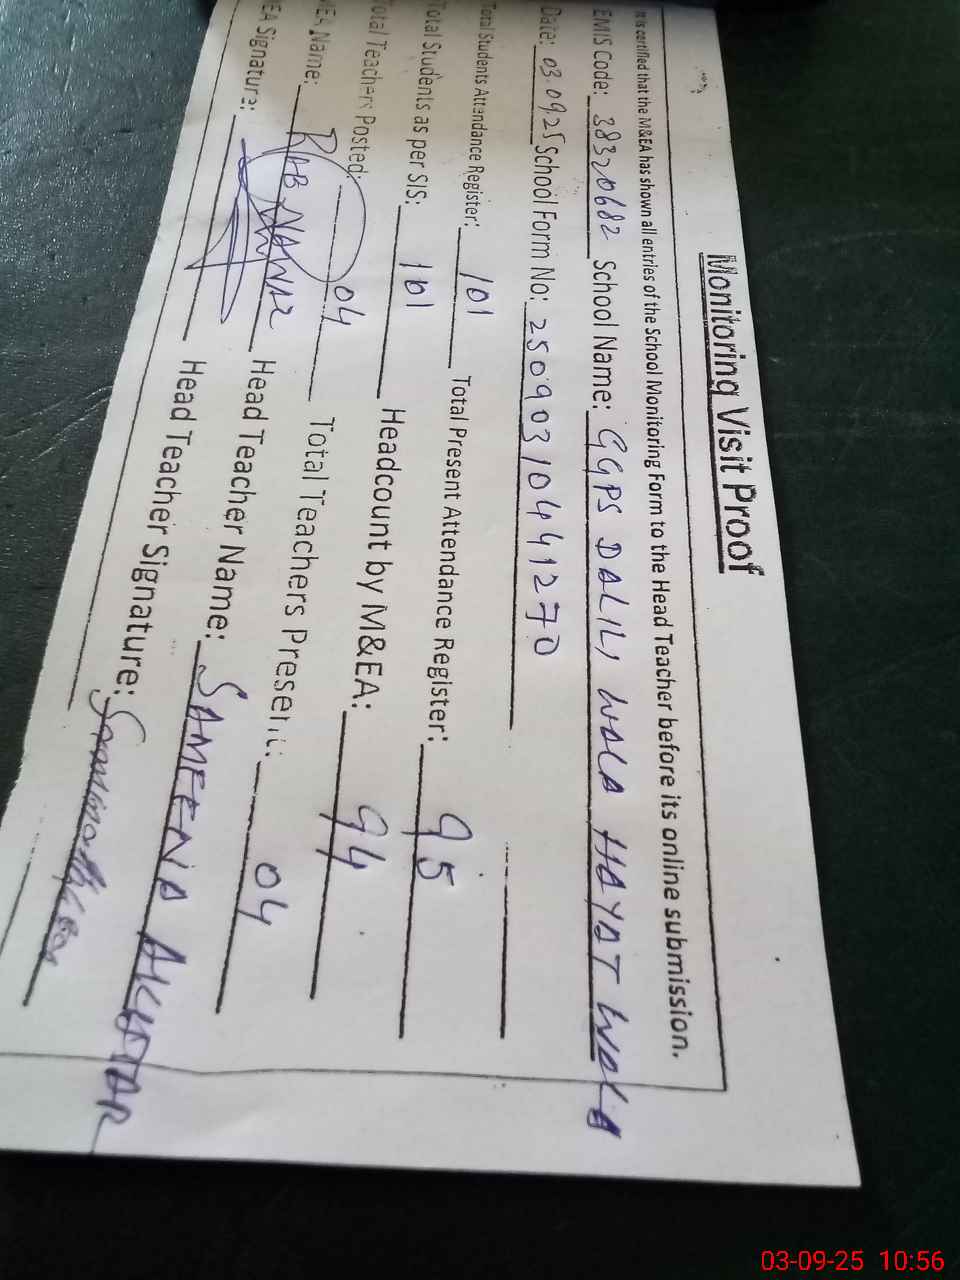 Monitoring Visit Proof
It is certified that the M&EA has shown all entries of the School Monitoring Form to the Head Teacher before its online submission.
EMIS Code: 38320682 School Name: GGPS DALIL, WALA HAYAT WALA
Date: 03.09.25 School Form No: 2509031044 1270
Total Students Attendance Register: 101 Total Present Attendance Register: 95
Total Students as per SIS: 101 Headcount by M&EA: 94
Total Teachers Posted: 04 Total Teachers Present: 04
EA Name: RAB NAWAZ Head Teacher Name: SAMEENA AKHTAR
EA Signature: Head Teacher Signature:
03-09-25 10:56